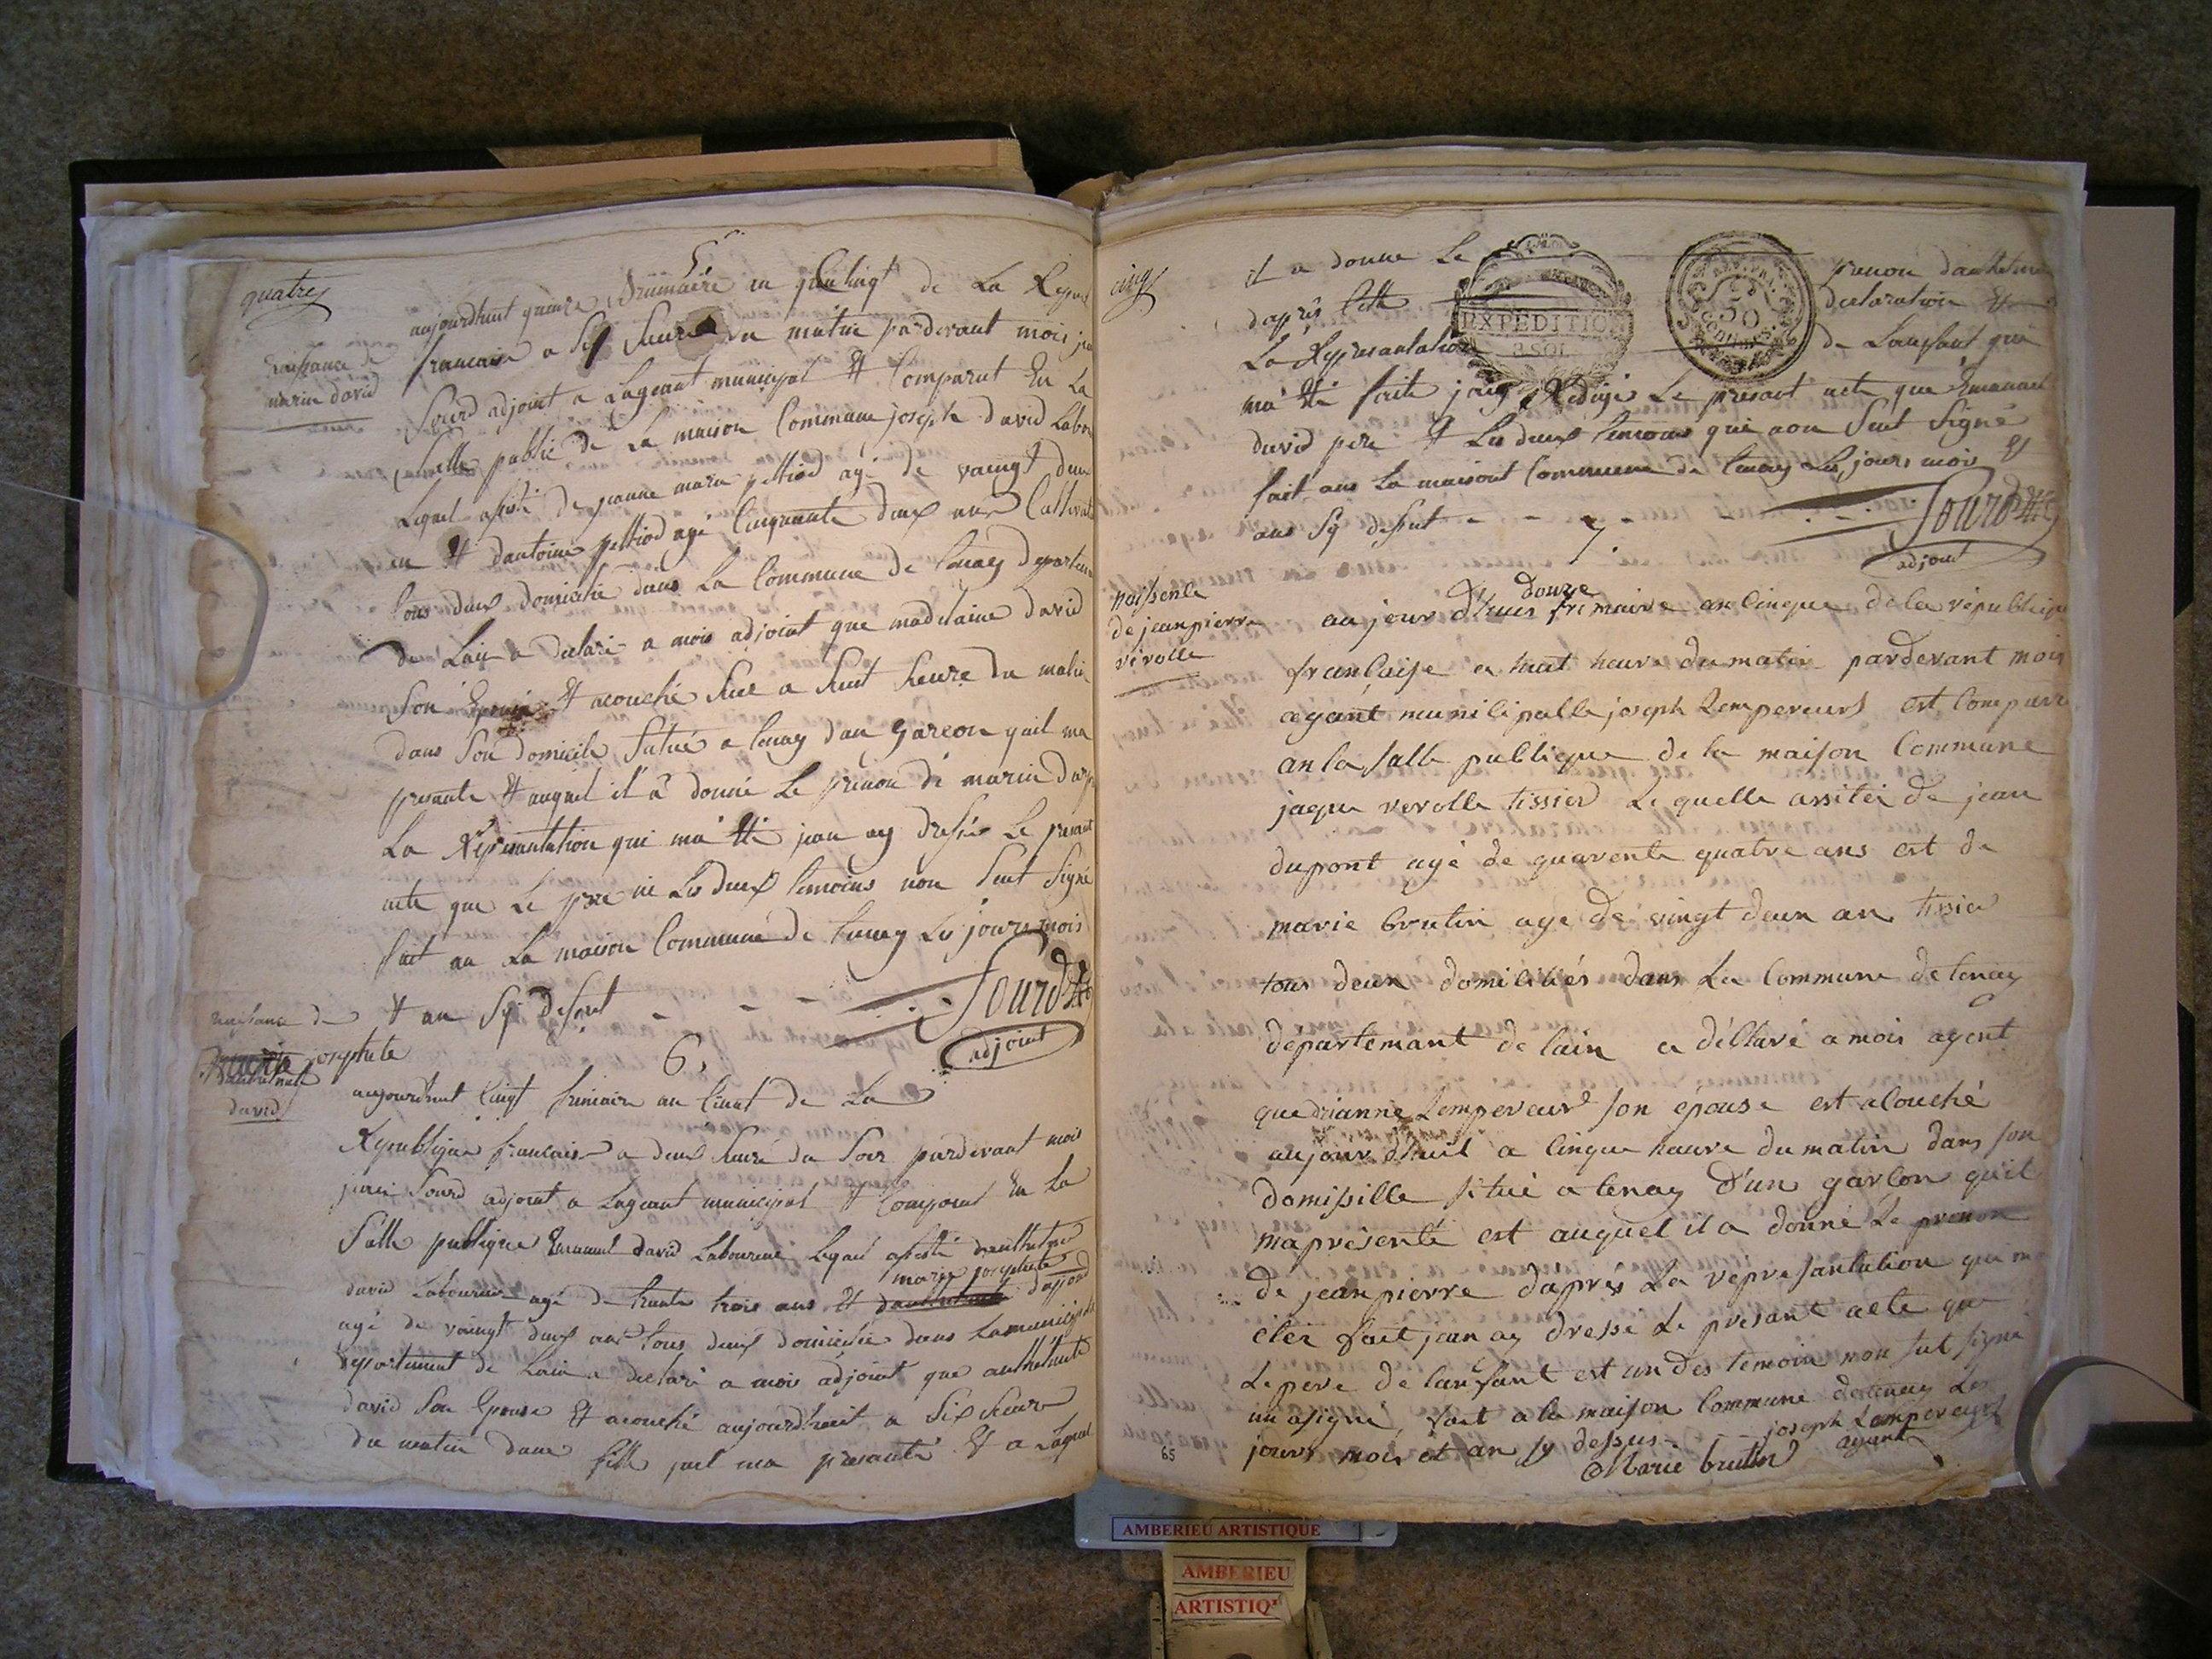 quatre
5
naissance de
marin david
aujourdhuit quinze Brumaire en
de La Repu
francaise a heure du matin pardevant mois
Sourd adjoint a Lageant municipal Et Comparut En La
Salle public de La maison Commune joseph david Labou
Lequel de jeanne marie pettiod agé de vaingt deux
an Et dantoine pettiod agé Cinquante deux ans Cultivat
tous deux domicilie dans La Commune de tenay departem
de Lain a declaré a mois adjoint que madelaine david
Son Epouse Et acouché a huit heure du matin
dans Son domicile Situé a tenay dun garcon quil ma
presanté Et auquel il a donné Le prenon de marin dap
La Representation qui ma Eté jean ay dressé Le presant
acte que Le pere ni Les deux temoins non Seut Signé
fait an La maison Commune de tenay Les jours mois
Et an Sy desut - - - Sourd
adjoint
naissance de
josephete
david
6.
aujourdhuit Cinq frimaire an Cinct de La
Republique francaise a deux heure du Soir pardevant mois
Sourd adjoint a Lageant municipal Et Comparut En La
Salle publique Emanuel david Laboureur Lequel
david Laboureur agé de trante trois ans Et marie josephete
agé de vaingt deux ans tous deux domicilie dans La municipal
departement de Lain a declaré a mois adjoint que anthelmete
david Son Epouse Et acouché aujourdhuit a Six heure
du matin dune fille quil ma presanté Et a Laquel
cinq
il a donne Le prenon danthelme
dapres Cette EXPEDITION 50 declaration Et
La Representation 3 SOL de Lanfant qui
ma Eté faite Redigé Le presant acte que Emanuel
david pere Et Les deux temoins que non Seut Signé
fait ans La maisont Commune de tenay Les jours mois Et
ans Sy desut - - - - Sourd
adjoint
7.
naissence
de jean pierre
verolle
aujour d'huis douze frimaire an cinque de la républiqu
française a huit heure du matin pardevant mois
agant municipalle joseph Lempereurs est Comparu
an la salle publique de la maison Commune
jaque verolle tissier Le quelle assitéz de jean
dupont agé de quarente quatre ans est de
marie brutin age de vingt deux an tissier
tous deux domiciliés dans La Commune de tenay
departemant de lain a déclaré a mois agent
que Lempereur son épouse est acouché
aujour d'huit a cinque heure du matin dans son
domissille situé a tenay d'un garcon quil
ma présenté est auquel il a donné Le prenon
de jean pierre daprés La représantation qui ma
étéz fait jean ay dressé Le présant acte que
Le pere de lanfant est un des témoin non sut signé
un a signé fait a la maison Commune de tenay Les
jours mois et an sy dessus - - joseph Lempereurs
agant
Marie brutin
65
AMBERIEU ARTISTIQUE
AMBERIEU
ARTISTIQ